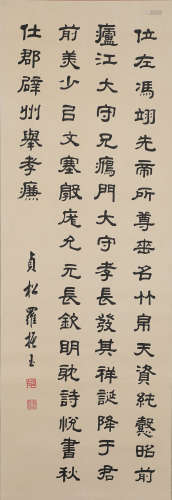 位左馮翊先帝所尊垂名竹帛天資純懿昭前
廬江大守兄鴈門大守孝長發其祥誕降于君
前美少㠯文塞敦庬允元長欽明耽詩悅書秋
仕郡辟州舉孝廉
貞松羅振玉